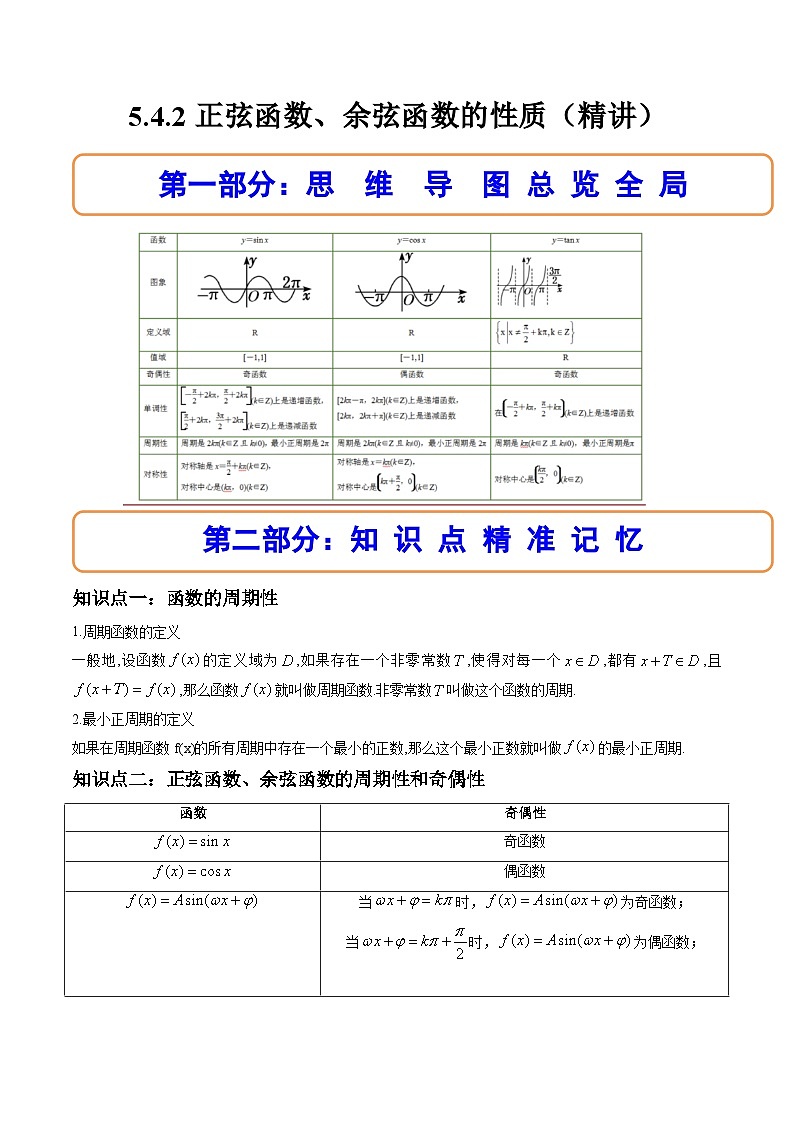 5.4.2 正弦函数、余弦函数的性质（精讲）
第一部分：思 维 导 图 总 览 全 局
函数 y=sin x y=cos x y=tan x
图象
y -π O π 2π x
y -π O π x
y -π O π 3π/2 x
定义域 R R {x|x≠π/2+kπ,k∈Z}
值域 [-1,1] [-1,1] R
奇偶性 奇函数 偶函数 奇函数
单调性
[-π/2+2kπ, π/2+2kπ](k∈Z)上是递增函数,
[π/2+2kπ, 3π/2+2kπ](k∈Z)上是递减函数
[2kπ-π, 2kπ](k∈Z)上是递增函数,
[2kπ, 2kπ+π](k∈Z)上是递减函数
在(-π/2+kπ, π/2+kπ)(k∈Z)上是递增函数
周期性 周期是 2kπ(k∈Z 且 k≠0), 最小正周期是 2π 周期是 2kπ(k∈Z 且 k≠0), 最小正周期是 2π 周期是 kπ(k∈Z 且 k≠0), 最小正周期是π
对称性
对称轴是 x=π/2+kπ(k∈Z),
对称中心是(kπ, 0)(k∈Z)
对称轴是 x=kπ(k∈Z),
对称中心是(kπ+π/2, 0)(k∈Z)
对称中心是(kπ/2, 0)(k∈Z)
第二部分：知 识 点 精 准 记 忆
知识点一：函数的周期性
1.周期函数的定义
一般地,设函数 f(x) 的定义域为 D,如果存在一个非零常数 T,使得对每一个 x∈D,都有 x+T∈D,且
f(x+T)=f(x),那么函数 f(x) 就叫做周期函数.非零常数 T 叫做这个函数的周期.
2.最小正周期的定义
如果在周期函数 f(x)的所有周期中存在一个最小的正数,那么这个最小正数就叫做 f(x) 的最小正周期.
知识点二：正弦函数、余弦函数的周期性和奇偶性
函数 奇偶性
f(x)=sin x 奇函数
f(x)=cos x 偶函数
f(x)=Asin(ωx+φ) 当 ωx+φ=kπ 时，f(x)=Asin(ωx+φ) 为奇函数；
当 ωx+φ=kπ+π/2 时，f(x)=Asin(ωx+φ) 为偶函数；